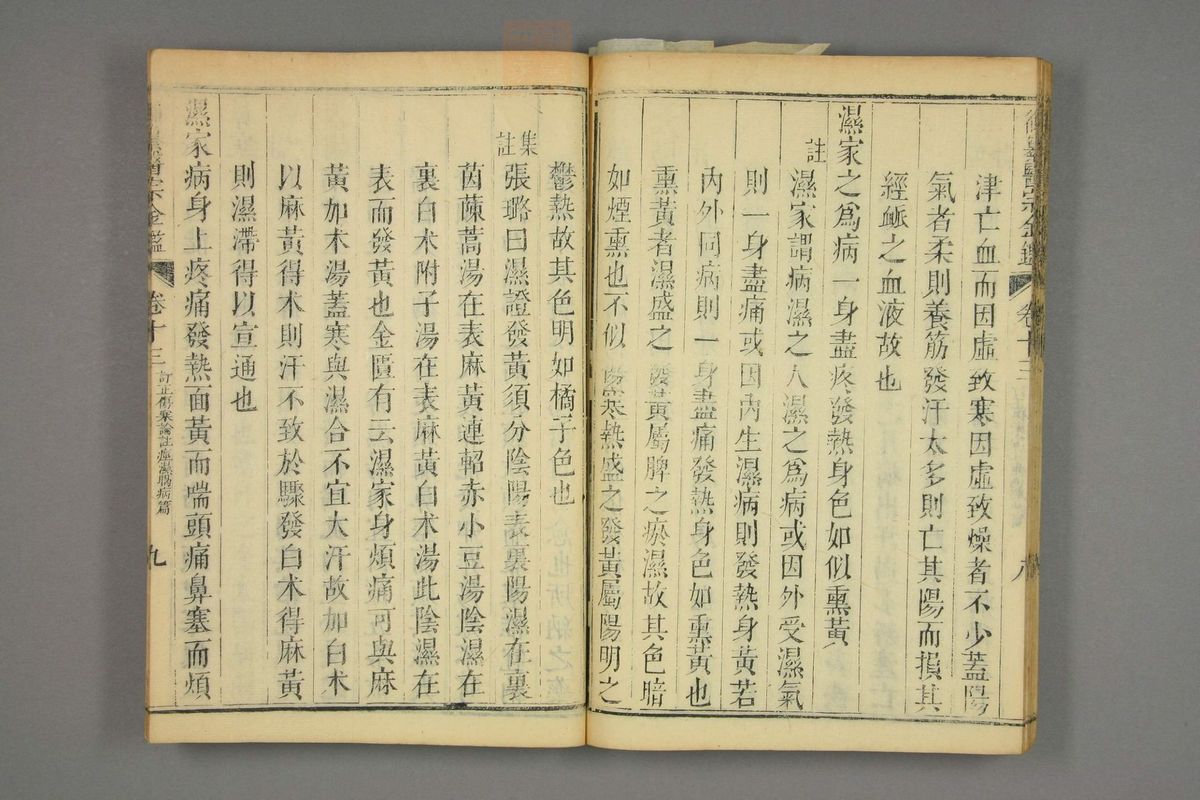 津亡血而因虛致寒因虛致燥者不少蓋陽
氣者柔則養筋發汗太多則亡其陽而損其
經絡之血液故也
濕家之爲病一身盡疼發熱身色如似熏黃
註
濕家謂病濕之人濕之爲病或因外受濕氣
則一身盡痛或因內生濕病則發熱身黃若
內外同病則一身盡痛發熱身色如熏黃也
熏黃者濕盛之發黃屬脾之瘀濕故其色暗
如煙熏也不似陽寒熱盛之發黃屬陽明之
鬱熱故其色明如橘子色也
集註
張璐曰濕證發黃須分陰陽表裏陽濕在裏
茵蔯蒿湯在表麻黃連軺赤小豆湯陰濕在
裏白朮附子湯在表麻黃白朮湯此陰濕在
表而發黃也金匱有云濕家身煩痛可與麻
黃加朮湯蓋寒與濕合不宜大汗故加白朮
以麻黃得朮則汗不致於驟發白朮得麻黃
則濕滯得以宣通也
濕家病身上疼痛發熱面黃而喘頭痛鼻塞而煩
御纂醫宗金鑑 卷十三 訂正傷寒論註痙濕暍病篇 九
御纂醫宗金鑑 卷十三 八